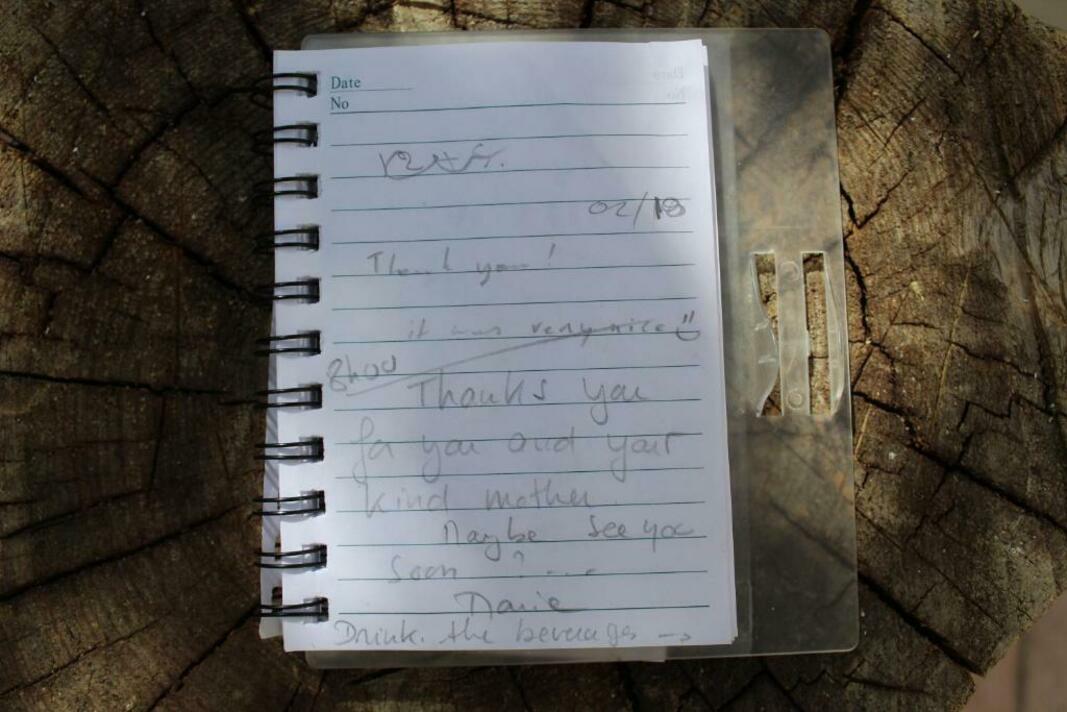 Date
No
02/18
Thank you!
it was very nice
Thanks you
for you and your
kind mother
Maybe see you
Soon ? ....
Marie
Drink. the beverages →